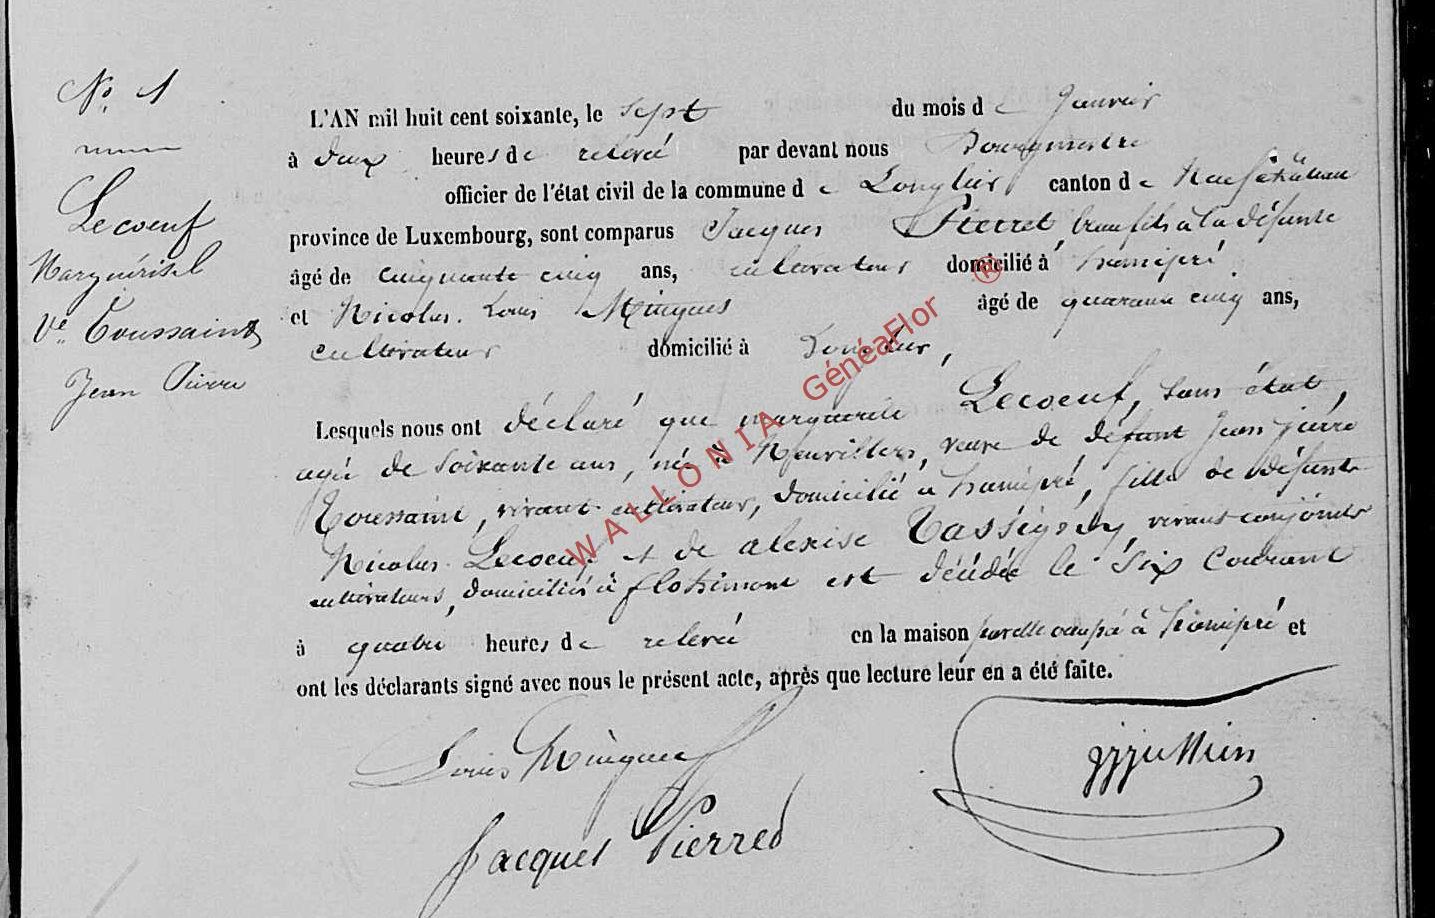 N° 1
Lecoeuf
Marguérite
Ve Toussaint
Jean Pierre
L'AN mil huit cent soixante, le sept du mois de Janvier
à deux heures de relevée par devant nous Bourgmestre
officier de l'état civil de la commune de Longlier canton de Neufchâteau
province de Luxembourg, sont comparus Jacques Pierret, beau fils à la défunte
âgé de cinquante cinq ans, cultivateur domicilié à hamipré
et Nicolas Louis Mingues âgé de quarante cinq ans,
cultivateur domicilié à Longlier,
Lesquels nous ont déclaré que marguerite Lecoeuf, sans état,
agée de soixante ans, née à Neuvillers, veuve de défunt Jean pierre
Toussaint, vivant cultivateur, domicilié à hamipré, fille de défunts
Nicolas Lecoeuf et de alexise Tassigny, vivants conjoints
cultivateurs, domiciliés à flohimont est décédée le six courant
à quatre heures de relevée en la maison par elle occupée à hamipré et
ont les déclarants signé avec nous le présent acte, après que lecture leur en a été faite.
Louis Mingues
Jacques Pierred
WALLONIA GénéaFlor ®